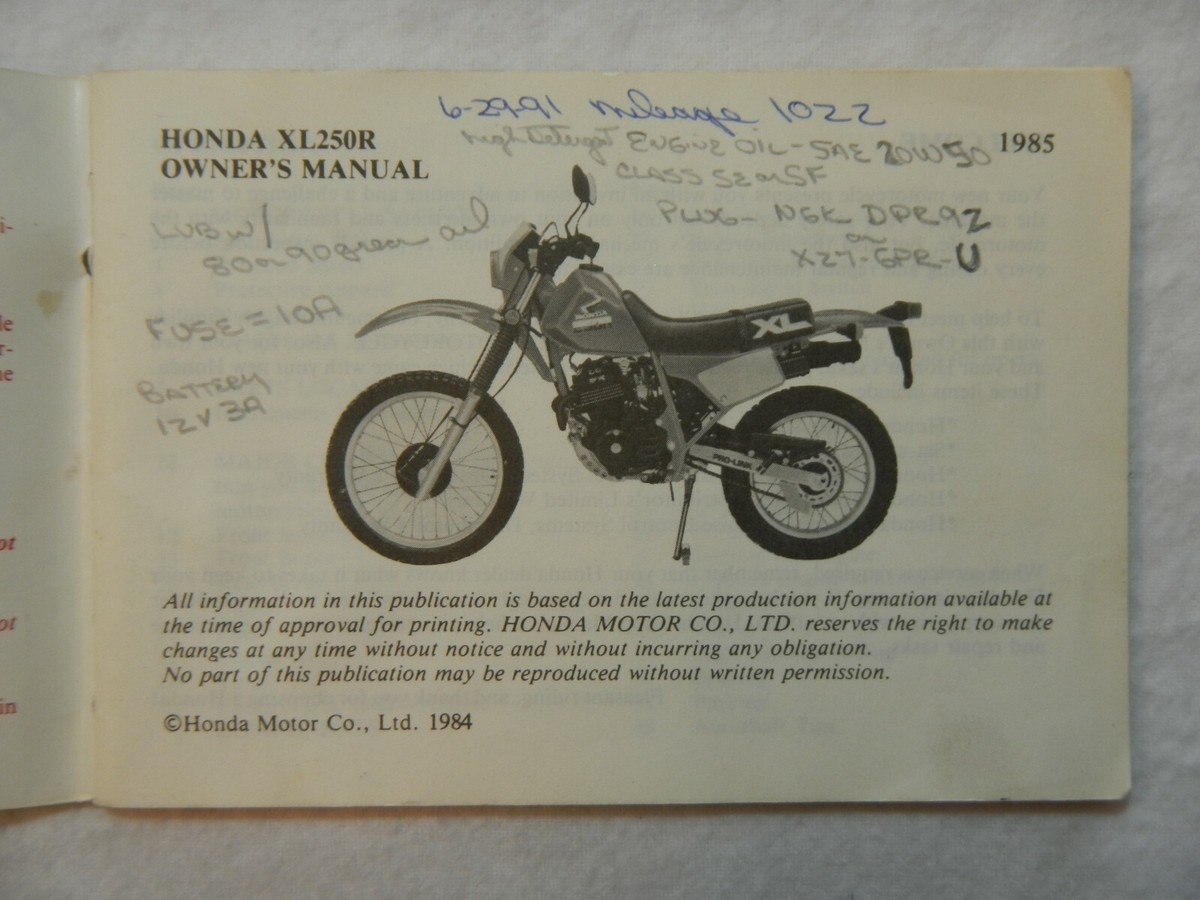 6-29-91 mileage 1022
HONDA XL250R
OWNER'S MANUAL
1985
High Detergent ENGINE OIL - SAE 20W50
CLASS SE or SF
LUB w/
80 or 90 gear oil
PLUG - NGK DPR9Z
or
X27-GPR-U
FUSE = 10A
BATTERY
12V 3A
HONDA
XL
PRO-LINK
All information in this publication is based on the latest production information available at
the time of approval for printing. HONDA MOTOR CO., LTD. reserves the right to make
changes at any time without notice and without incurring any obligation.
No part of this publication may be reproduced without written permission.
©Honda Motor Co., Ltd. 1984
i-
le
r-
ne
ot
ot
in